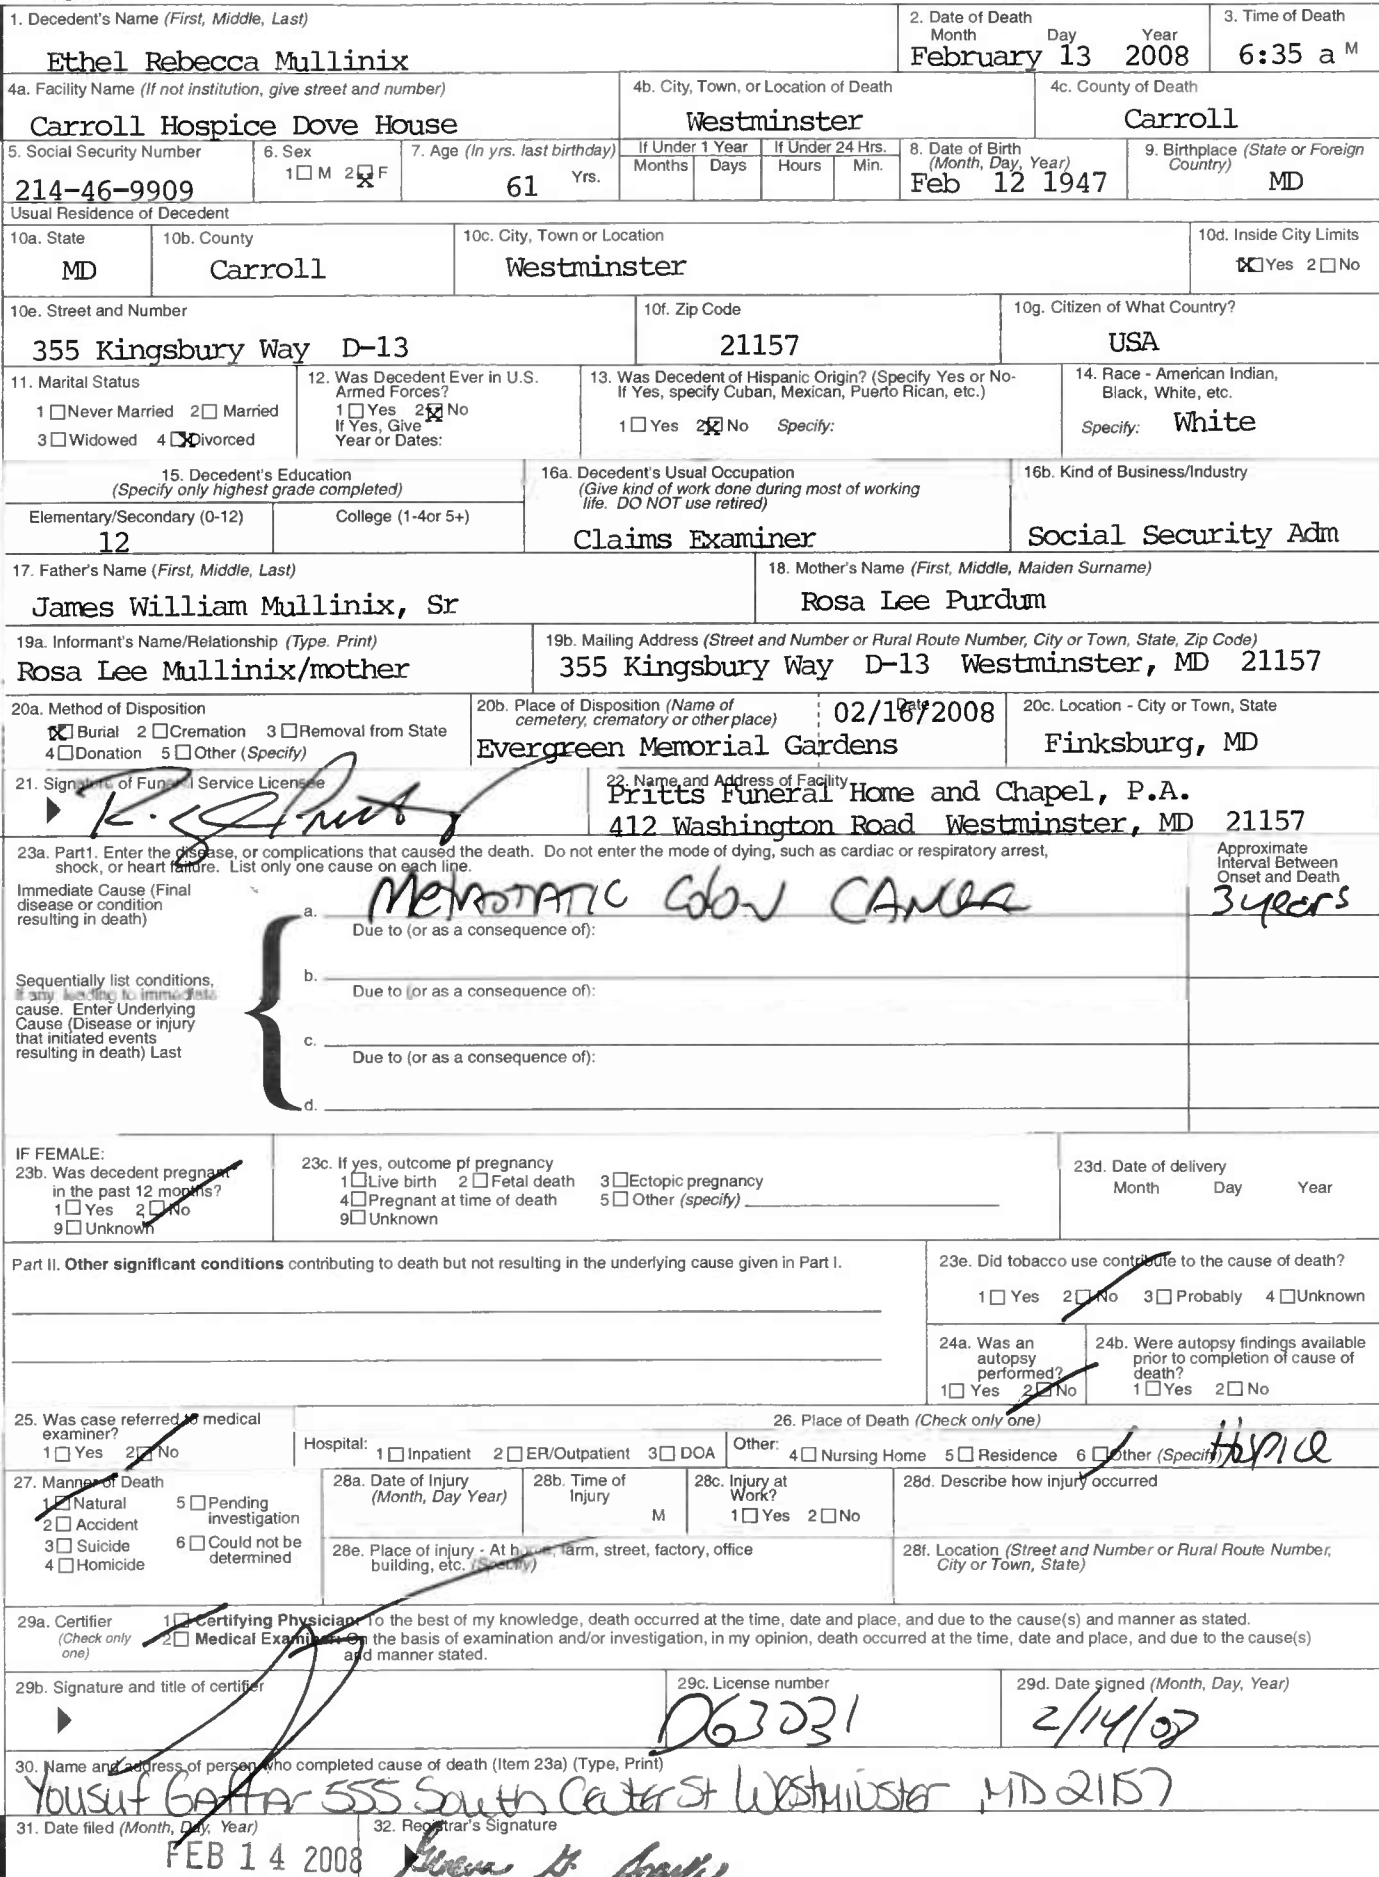 1. Decedent's Name (First, Middle, Last)
Ethel Rebecca Mullinix
2. Date of Death
Month Day Year
February 13 2008
3. Time of Death
6:35 a M
4a. Facility Name (If not institution, give street and number)
Carroll Hospice Dove House
4b. City, Town, or Location of Death
Westminster
4c. County of Death
Carroll
5. Social Security Number
214-46-9909
6. Sex
1 ☐ M 2 ☒ F
7. Age (In yrs. last birthday)
61 Yrs.
If Under 1 Year
Months Days
If Under 24 Hrs.
Hours Min.
8. Date of Birth
(Month, Day, Year)
Feb 12 1947
9. Birthplace (State or Foreign
Country)
MD
Usual Residence of Decedent
10a. State
MD
10b. County
Carroll
10c. City, Town or Location
Westminster
10d. Inside City Limits
☒ Yes 2 ☐ No
10e. Street and Number
355 Kingsbury Way D-13
10f. Zip Code
21157
10g. Citizen of What Country?
USA
11. Marital Status
1 ☐ Never Married 2 ☐ Married
3 ☐ Widowed 4 ☒ Divorced
12. Was Decedent Ever in U.S.
Armed Forces?
1 ☐ Yes 2 ☒ No
If Yes, Give
Year or Dates:
13. Was Decedent of Hispanic Origin? (Specify Yes or No-
If Yes, specify Cuban, Mexican, Puerto Rican, etc.)
1 ☐ Yes 2 ☒ No Specify:
14. Race - American Indian,
Black, White, etc.
Specify: White
15. Decedent's Education
(Specify only highest grade completed)
Elementary/Secondary (0-12)
12
College (1-4or 5+)
16a. Decedent's Usual Occupation
(Give kind of work done during most of working
life. DO NOT use retired)
Claims Examiner
16b. Kind of Business/Industry
Social Security Adm
17. Father's Name (First, Middle, Last)
James William Mullinix, Sr
18. Mother's Name (First, Middle, Maiden Surname)
Rosa Lee Purdum
19a. Informant's Name/Relationship (Type. Print)
Rosa Lee Mullinix/mother
19b. Mailing Address (Street and Number or Rural Route Number, City or Town, State, Zip Code)
355 Kingsbury Way D-13 Westminster, MD 21157
20a. Method of Disposition
☒ Burial 2 ☐ Cremation 3 ☐ Removal from State
4 ☐ Donation 5 ☐ Other (Specify)
20b. Place of Disposition (Name of
cemetery, crematory or other place)
Evergreen Memorial Gardens
Date
02/16/2008
20c. Location - City or Town, State
Finksburg, MD
21. Signature of Funeral Service Licensee
22. Name and Address of Facility
Pritts Funeral Home and Chapel, P.A.
412 Washington Road Westminster, MD 21157
23a. Part1. Enter the disease, or complications that caused the death. Do not enter the mode of dying, such as cardiac or respiratory arrest,
shock, or heart failure. List only one cause on each line.
Approximate
Interval Between
Onset and Death
Immediate Cause (Final
disease or condition
resulting in death)
a. Metastatic Colon Cancer
3 years
Due to (or as a consequence of):
Sequentially list conditions,
if any, leading to immediate
cause. Enter Underlying
Cause (Disease or injury
that initiated events
resulting in death) Last
b.
Due to (or as a consequence of):
c.
Due to (or as a consequence of):
d.
IF FEMALE:
23b. Was decedent pregnant
in the past 12 months?
1 ☐ Yes 2 ☑ No
9 ☐ Unknown
23c. If yes, outcome pf pregnancy
1 ☐ Live birth 2 ☐ Fetal death 3 ☐ Ectopic pregnancy
4 ☐ Pregnant at time of death 5 ☐ Other (specify)
9 ☐ Unknown
23d. Date of delivery
Month Day Year
Part II. Other significant conditions contributing to death but not resulting in the underlying cause given in Part I.
23e. Did tobacco use contribute to the cause of death?
1 ☐ Yes 2 ☑ No 3 ☐ Probably 4 ☐ Unknown
24a. Was an
autopsy
performed?
1 ☐ Yes 2 ☑ No
24b. Were autopsy findings available
prior to completion of cause of
death?
1 ☐ Yes 2 ☐ No
25. Was case referred to medical
examiner?
1 ☐ Yes 2 ☑ No
26. Place of Death (Check only one)
Hospital: 1 ☐ Inpatient 2 ☐ ER/Outpatient 3 ☐ DOA
Other: 4 ☐ Nursing Home 5 ☐ Residence 6 ☑ Other (Specify) Hospice
27. Manner of Death
1 ☑ Natural 5 ☐ Pending
investigation
2 ☐ Accident
3 ☐ Suicide 6 ☐ Could not be
determined
4 ☐ Homicide
28a. Date of Injury
(Month, Day Year)
28b. Time of
Injury
M
28c. Injury at
Work?
1 ☐ Yes 2 ☐ No
28d. Describe how injury occurred
28e. Place of injury - At home, farm, street, factory, office
building, etc. (Specify)
28f. Location (Street and Number or Rural Route Number,
City or Town, State)
29a. Certifier
(Check only
one)
1 ☑ Certifying Physician: To the best of my knowledge, death occurred at the time, date and place, and due to the cause(s) and manner as stated.
2 ☐ Medical Examiner: On the basis of examination and/or investigation, in my opinion, death occurred at the time, date and place, and due to the cause(s)
and manner stated.
29b. Signature and title of certifier
29c. License number
D63031
29d. Date signed (Month, Day, Year)
2/14/08
30. Name and address of person who completed cause of death (Item 23a) (Type, Print)
Yousuf Gaffar 555 South Center St Westminster MD 21157
31. Date filed (Month, Day, Year)
FEB 14 2008
32. Registrar's Signature